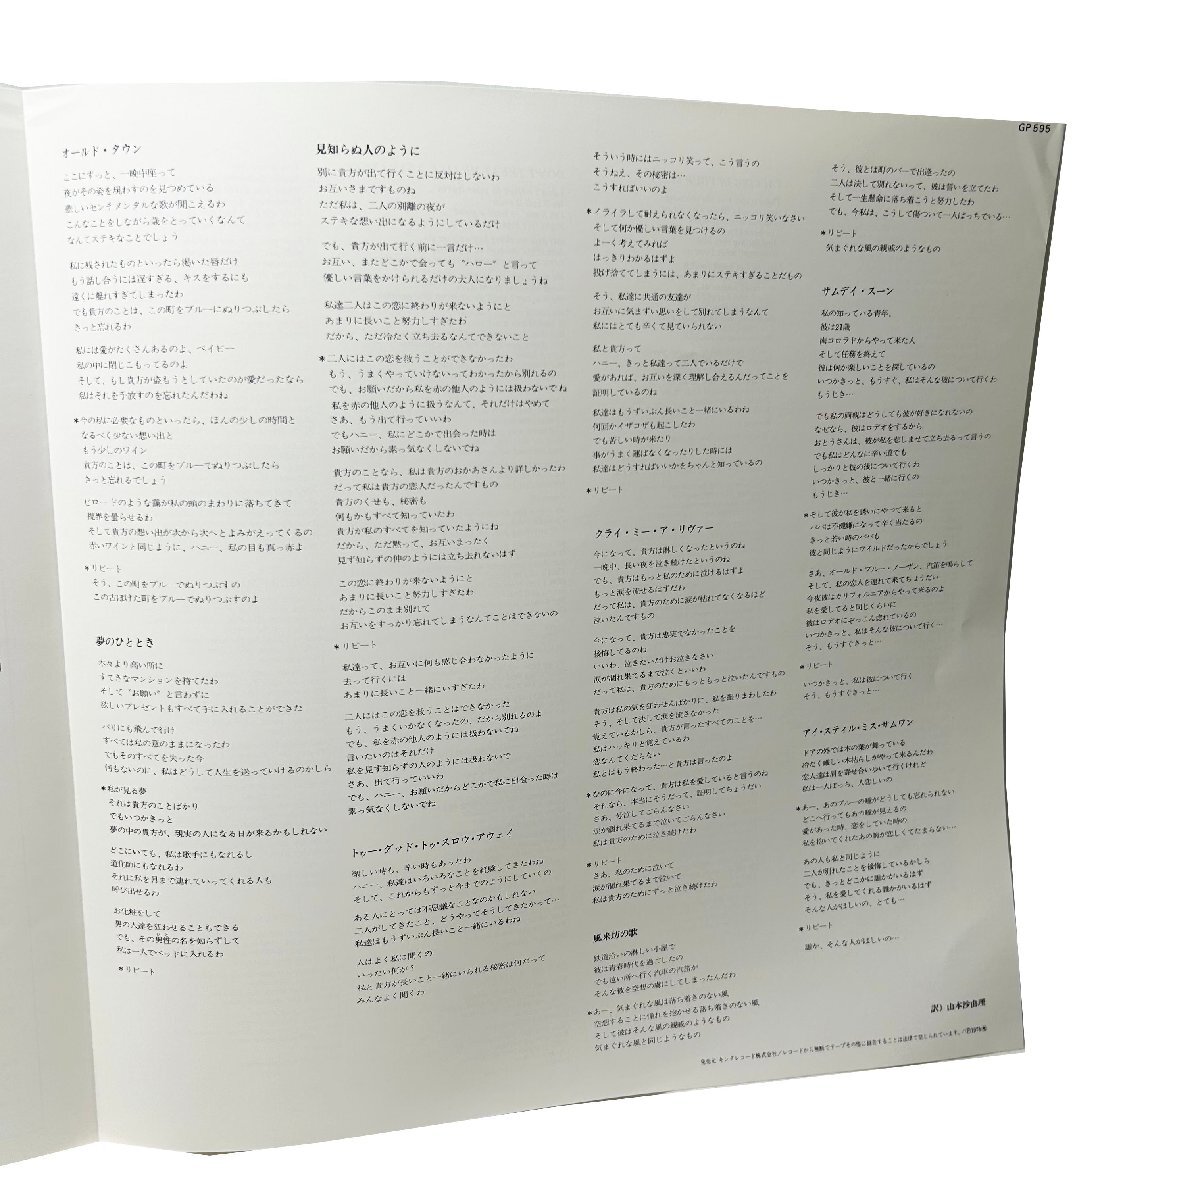 GP 695
オールド・タウン
ここにずっと、一晩中座って
夜がその姿を現わすのを見つめている
悲しいセンチメンタルな歌が聞こえるわ
こんなことをしながら歳をとっていくなんて
なんてステキなことでしょう
私に残されたものといったら渇いた唇だけ
もう話し合うには遅すぎる、キスをするにも
遠くに離れすぎてしまったわ
でも貴方のことは、この町をブルーにぬりつぶしたら
きっと忘れるわ
私には愛がたくさんあるのよ、ベイビー
私の中に閉じこもってるのよ
そして、もし貴方が盗もうとしていたのが愛だったなら
私はそれを手渡すのを忘れたんだわね
*今の私に必要なものといったら、ほんの少しの時間と
なるべく少ない想い出と
もう少しのワイン
貴方のことは、この町をブルーでぬりつぶしたら
きっと忘れるでしょう
ビロードのような靄が私の頭のまわりに落ちてきて
視界を曇らせるわ
そして貴方の想い出が次から次へとよみがえってくるの
赤いワインと同じように、ハニー、私の目も真っ赤よ
*リピート
そう、この町をブルーでぬりつぶすの
この古ぼけた町をブルーでぬりつぶすのよ
夢のひととき
木々より高い所に
すてきなマンションを持てたわ
そして“お願い”と言わずに
欲しいプレゼントもすべて手に入れることができた
パリにも飛んで行け
すべては私の意のままになったわ
でもそのすべてを失った今
何もないのに、私はどうして人生を送っていけるのかしら
*私が見る夢
それは貴方のことばかり
でもいつかきっと
夢の中の貴方が、現実の人になる日が来るかもしれない
どこにいても、私は歌手にもなれるし
道化師にもなれるわ
それに私を月まで連れていってくれる人も
呼び出せるわ
お化粧をして
男の人達を狂わせることもできる
でも、その男性の名を知らずして
私は一人でベッドに入れるわ
*リピート
見知らぬ人のように
別に貴方が出て行くことに反対はしないわ
お互いさまですものね
ただ私は、二人の別離の夜が
ステキな想い出になるようにしているだけ
でも、貴方が出て行く前に一言だけ…
お互い、またどこかで会っても“ハロー”と言って
優しい言葉をかけられるだけの大人になりましょうね
私達二人はこの恋に終わりが来ないようにと
あまりに長いこと努力しすぎたわ
だから、ただ冷たく立ち去るなんてできないこと
*二人にはこの恋を救うことができなかったわ
もう、うまくやっていけないってわかったから別れるの
でも、お願いだから私を赤の他人のようには扱わないでね
私を赤の他人のように扱うなんて、それだけはやめて
さあ、もう出て行っていいわ
でもハニー、私にどこかで出会った時は
お願いだから素っ気なくしないでね
貴方のことなら、私は貴方のおかあさんより詳しかったわ
だって私は貴方の恋人だったんですもの
貴方のくせも、秘密も
何もかもすべて知っていたわ
貴方が私のすべてを知っていたようにね
だから、ただ黙って、お互いまったく
見ず知らずの仲のようには立ち去れないはず
この恋に終わりが来ないようにと
あまりに長いこと努力しすぎたわ
だからこのまま別れて
お互いをすっかり忘れてしまうなんてことはできないの
*リピート
私達って、お互いに何も感じ合わなかったように
去って行くには
あまりに長いこと一緒にいすぎたわ
二人にはこの恋を救うことはできなかった
もう、うまくいかなくなったの、だから別れるのよ
でも、私を赤の他人のようには扱わないでね
言いたいのはそれだけ
私を見ず知らずの人のようには扱わないで
さあ、出て行っていいわ
でも、ハニー、お願いだからどこかで私に出会った時は
素っ気なくしないでね
トゥー・グッド・トゥ・スロウ・アウェイ
嬉しい時も、辛い時もあったわ
ハニー、私達はいろいろなことを経験してきたわね
そして、これからもずっと今までのようにしていくの
ある人にとっては不思議なことなのかもしれない
二人がしてきたこと、どうやってそうしてきたかって…
私達はもうずいぶん長いこと一緒にいるわね
人はよく私に聞くの
いったい何が?
私と貴方が長いこと一緒にいられる秘密は何だって
みんなよく聞くわ
そういう時にはニッコリ笑って、こう言うの
そうねえ、その秘密は…
こうすればいいのよ
*イライラして耐えられなくなったら、ニッコリ笑いなさい
そして何か優しい言葉を見つけるの
よーく考えてみれば
はっきりわかるはずよ
投げ捨ててしまうには、あまりにステキすぎることだもの
そう、私達に共通の友達が
お互いに気まずい思いをして別れてしまうなんて
私にはとても辛くて見ていられない
私と貴方って
ハニー、きっと私達って二人でいるだけで
愛があれば、お互いを深く理解し合えるんだってことを
証明しているのね
私達はもうずいぶん長いこと一緒にいるわね
何回かイザコザも起こしたわ
でも苦しい時が来たり
事がうまく運ばなくなったりした時には
私達はどうすればいいかをちゃんと知っているの
*リピート
クライ・ミー・ア・リヴァー
今になって、貴方は淋しくなったというのね
一晩中、長い夜を泣き続けたというのね
でも、貴方はもっと私のために泣けるはずよ
もっと涙を流せるはずだわ
だって私は、貴方のために涙が枯れてなくなるほど
泣いたんですもの
今になって、貴方は忠実でなかったことを
後悔してるのね
いいわ、泣きたいだけお泣きなさい
涙が涸れ果てるまで泣くといいわ
だって私は、貴方のためにもっともっと泣いたんですもの
貴方は私の気を狂わせんばかりに、私を振りまわしたわ
そう、そして決して涙を流さなかった
覚えているかしら、貴方が言ったすべてのことを…
私はハッキリと覚えているわ
恋なんてくだらない
私とはもう終わった…と貴方は言ったのよ
*なのに今になって、貴方は私を愛していると言うのね
それなら、本当にそうだって、証明してちょうだい
さあ、号泣してごらんなさい
涙が涸れ果てるまで泣いてごらんなさい
私は貴方のために泣き続けたわ
*リピート
さあ、私のために泣いて
涙が涸れ果てるまで泣いて
私は貴方のためにずっと泣き続けたわ
風来坊の歌
鉄道沿いの淋しい小屋で
彼は青春時代を過ごしたの
でも遠い所へ行く汽車の汽笛が
そんな彼を空想の虜にしてしまったんだわ
*あー、気まぐれな風は落ち着きのない風
空想することに憧れを抱かせる落ち着きのない風
そして彼はそんな風の親戚のようなもの
気まぐれな風と同じようなもの
そう、彼とは町のバーで出逢ったの
二人は決して別れないって、彼は誓いを立てたわ
そして一生懸命に落ち着こうと努力したわ
でも、今私は、こうして傷ついて一人ぼっちでいる…
*リピート
気まぐれな風の親戚のようなもの
サムデイ・スーン
私の知っている青年、
彼は21歳
南コロラドからやって来た人
そして任務を終えて
彼は何か楽しいことを探しているの
いつかきっと、もうすぐ、私はそんな彼について行くわ
もうじき…
でも私の両親はどうしても彼が好きになれないの
なぜなら、彼はロデオをするから
おとうさんは、彼が私を悲しませて立ち去るって言うの
でも私はどんなに辛い道でも
しっかりと彼の後について行くわ
いつかきっと、彼と一緒に行くの
もうじき…
*そして彼が私を誘いにやって来ると
パパは不機嫌になって辛く当たるの
きっと若い時のパパも
彼と同じようにワイルドだったからでしょう
さあ、オールド・ブルー・ノーザン、汽笛を鳴らして
そして、私の恋人を連れて来てちょうだい
今夜彼はカリフォルニアからやって来るのよ
私を愛してると同じくらいに
彼はロデオにぞっこん惚れているの
いつかきっと、私はそんな彼について行く…
そう、もうすぐきっと…
*リピート
いつかきっと、私は彼について行く
そう、もうすぐきっと…
アイ・スティル・ミス・サムワン
ドアの外では木の葉が舞っている
冷たく厳しい木枯らしがやって来るんだわ
恋人達は肩を寄せ合い歩いて行くけれど
私は一人ぼっち、人恋しいの
*あー、あのブルーの瞳がどうしても忘れられない
どこへ行ってもあの瞳が見えるの
愛があった時、恋をしていた時の
私を抱いてくれたあの腕が恋しくてたまらない…
あの人も私と同じように
二人が別れたことを後悔しているかしら
でも、きっとどこかに誰かがいるはず
そう、私を愛してくれる誰かがいるはず
そんな人がほしいの、とても…
*リピート
誰か、そんな人がほしいの…
訳）山本沙由理
発売元 キングレコード株式会社／レコードから無断でテープその他に録音することは法律で禁じられています。